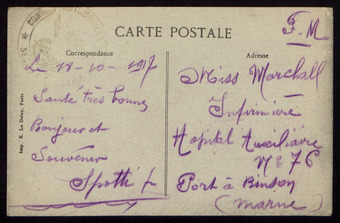 CARTE POSTALE
F. M
Correspondance
Adresse
Le 18-10-1917
Santé très bonne
Bonjour et
Souvenir
Spotti
Miss Marchall
Infirmière
Hopital Auxiliaire
N° 76
Port à Binson
(Marne)
Imp. E. Le Deley, Paris